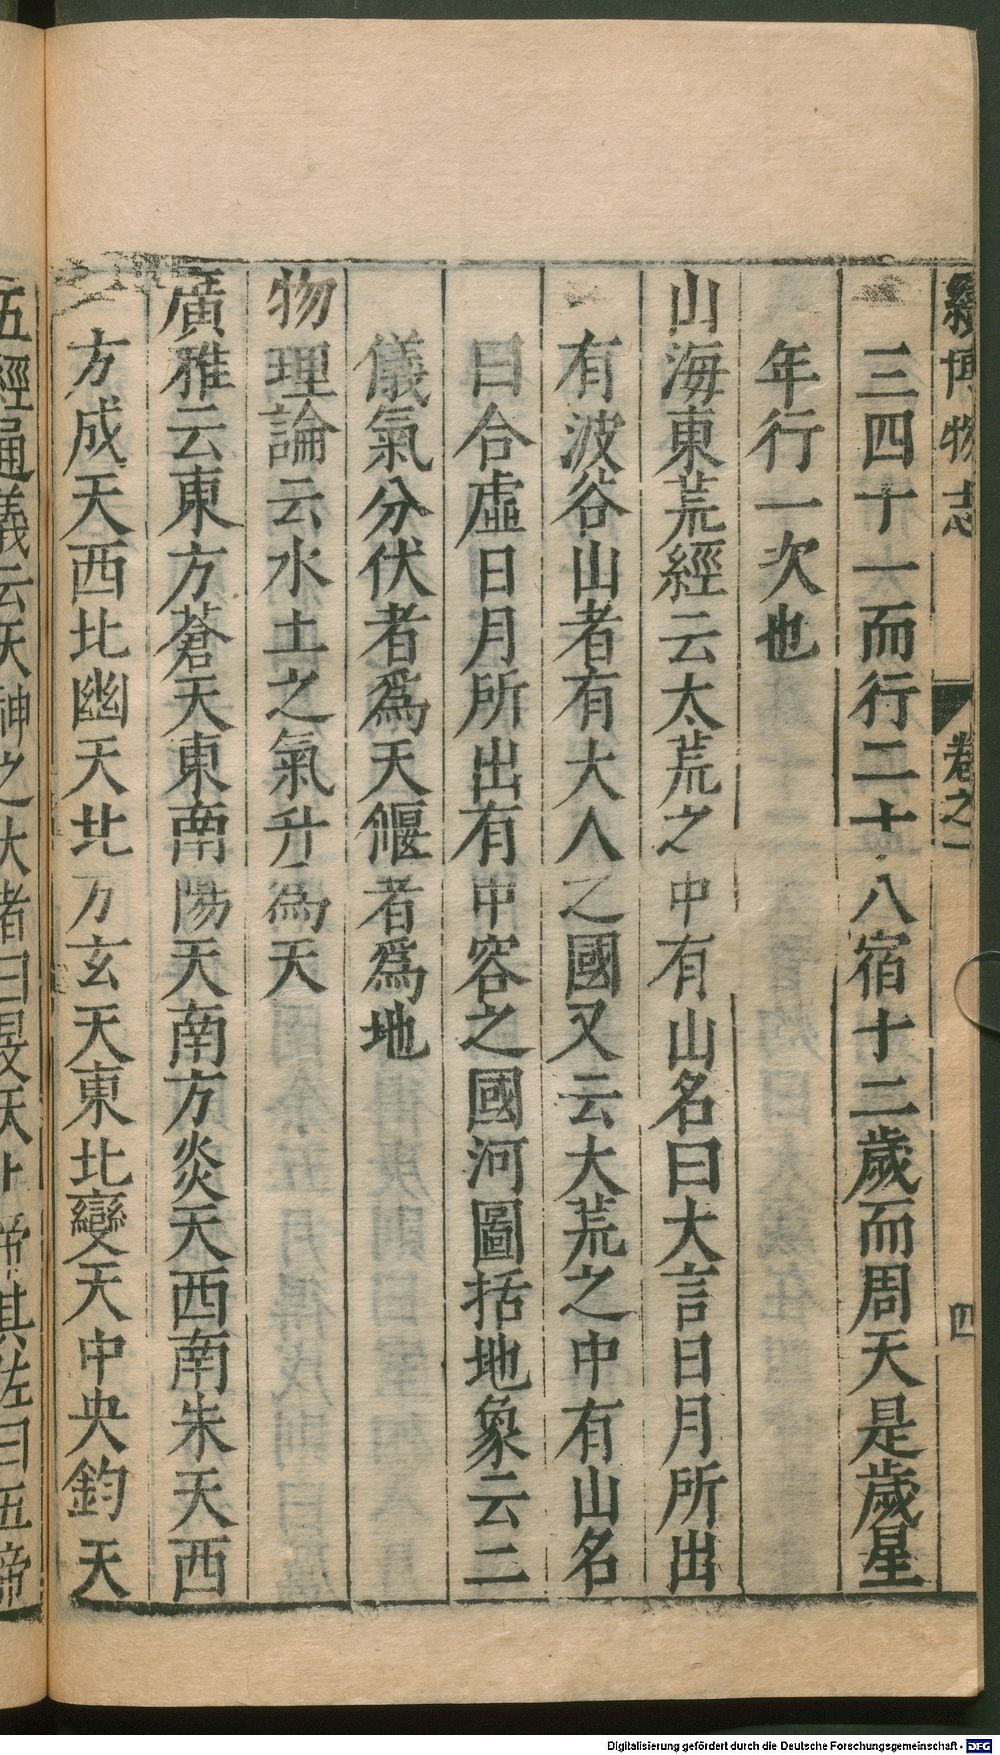 續博物志 卷之一 四
三四十一而行二十八宿十二歲而周天是歲星
年行一次也
山海東荒經云太荒之中有山名曰大言日月所出
有波谷山者有大人之國又云大荒之中有山名
曰合虛日月所出有中容之國河圖括地象云二
儀氣分伏者爲天偃者爲地
物理論云水土之氣升爲天
廣雅云東方蒼天東南陽天南方炎天西南朱天西
方成天西北幽天北方玄天東北變天中央鈞天
五經通議云天神之大者曰昊天上帝其佐曰五帝
Digitalisierung gefördert durch die Deutsche Forschungsgemeinschaft - DFG